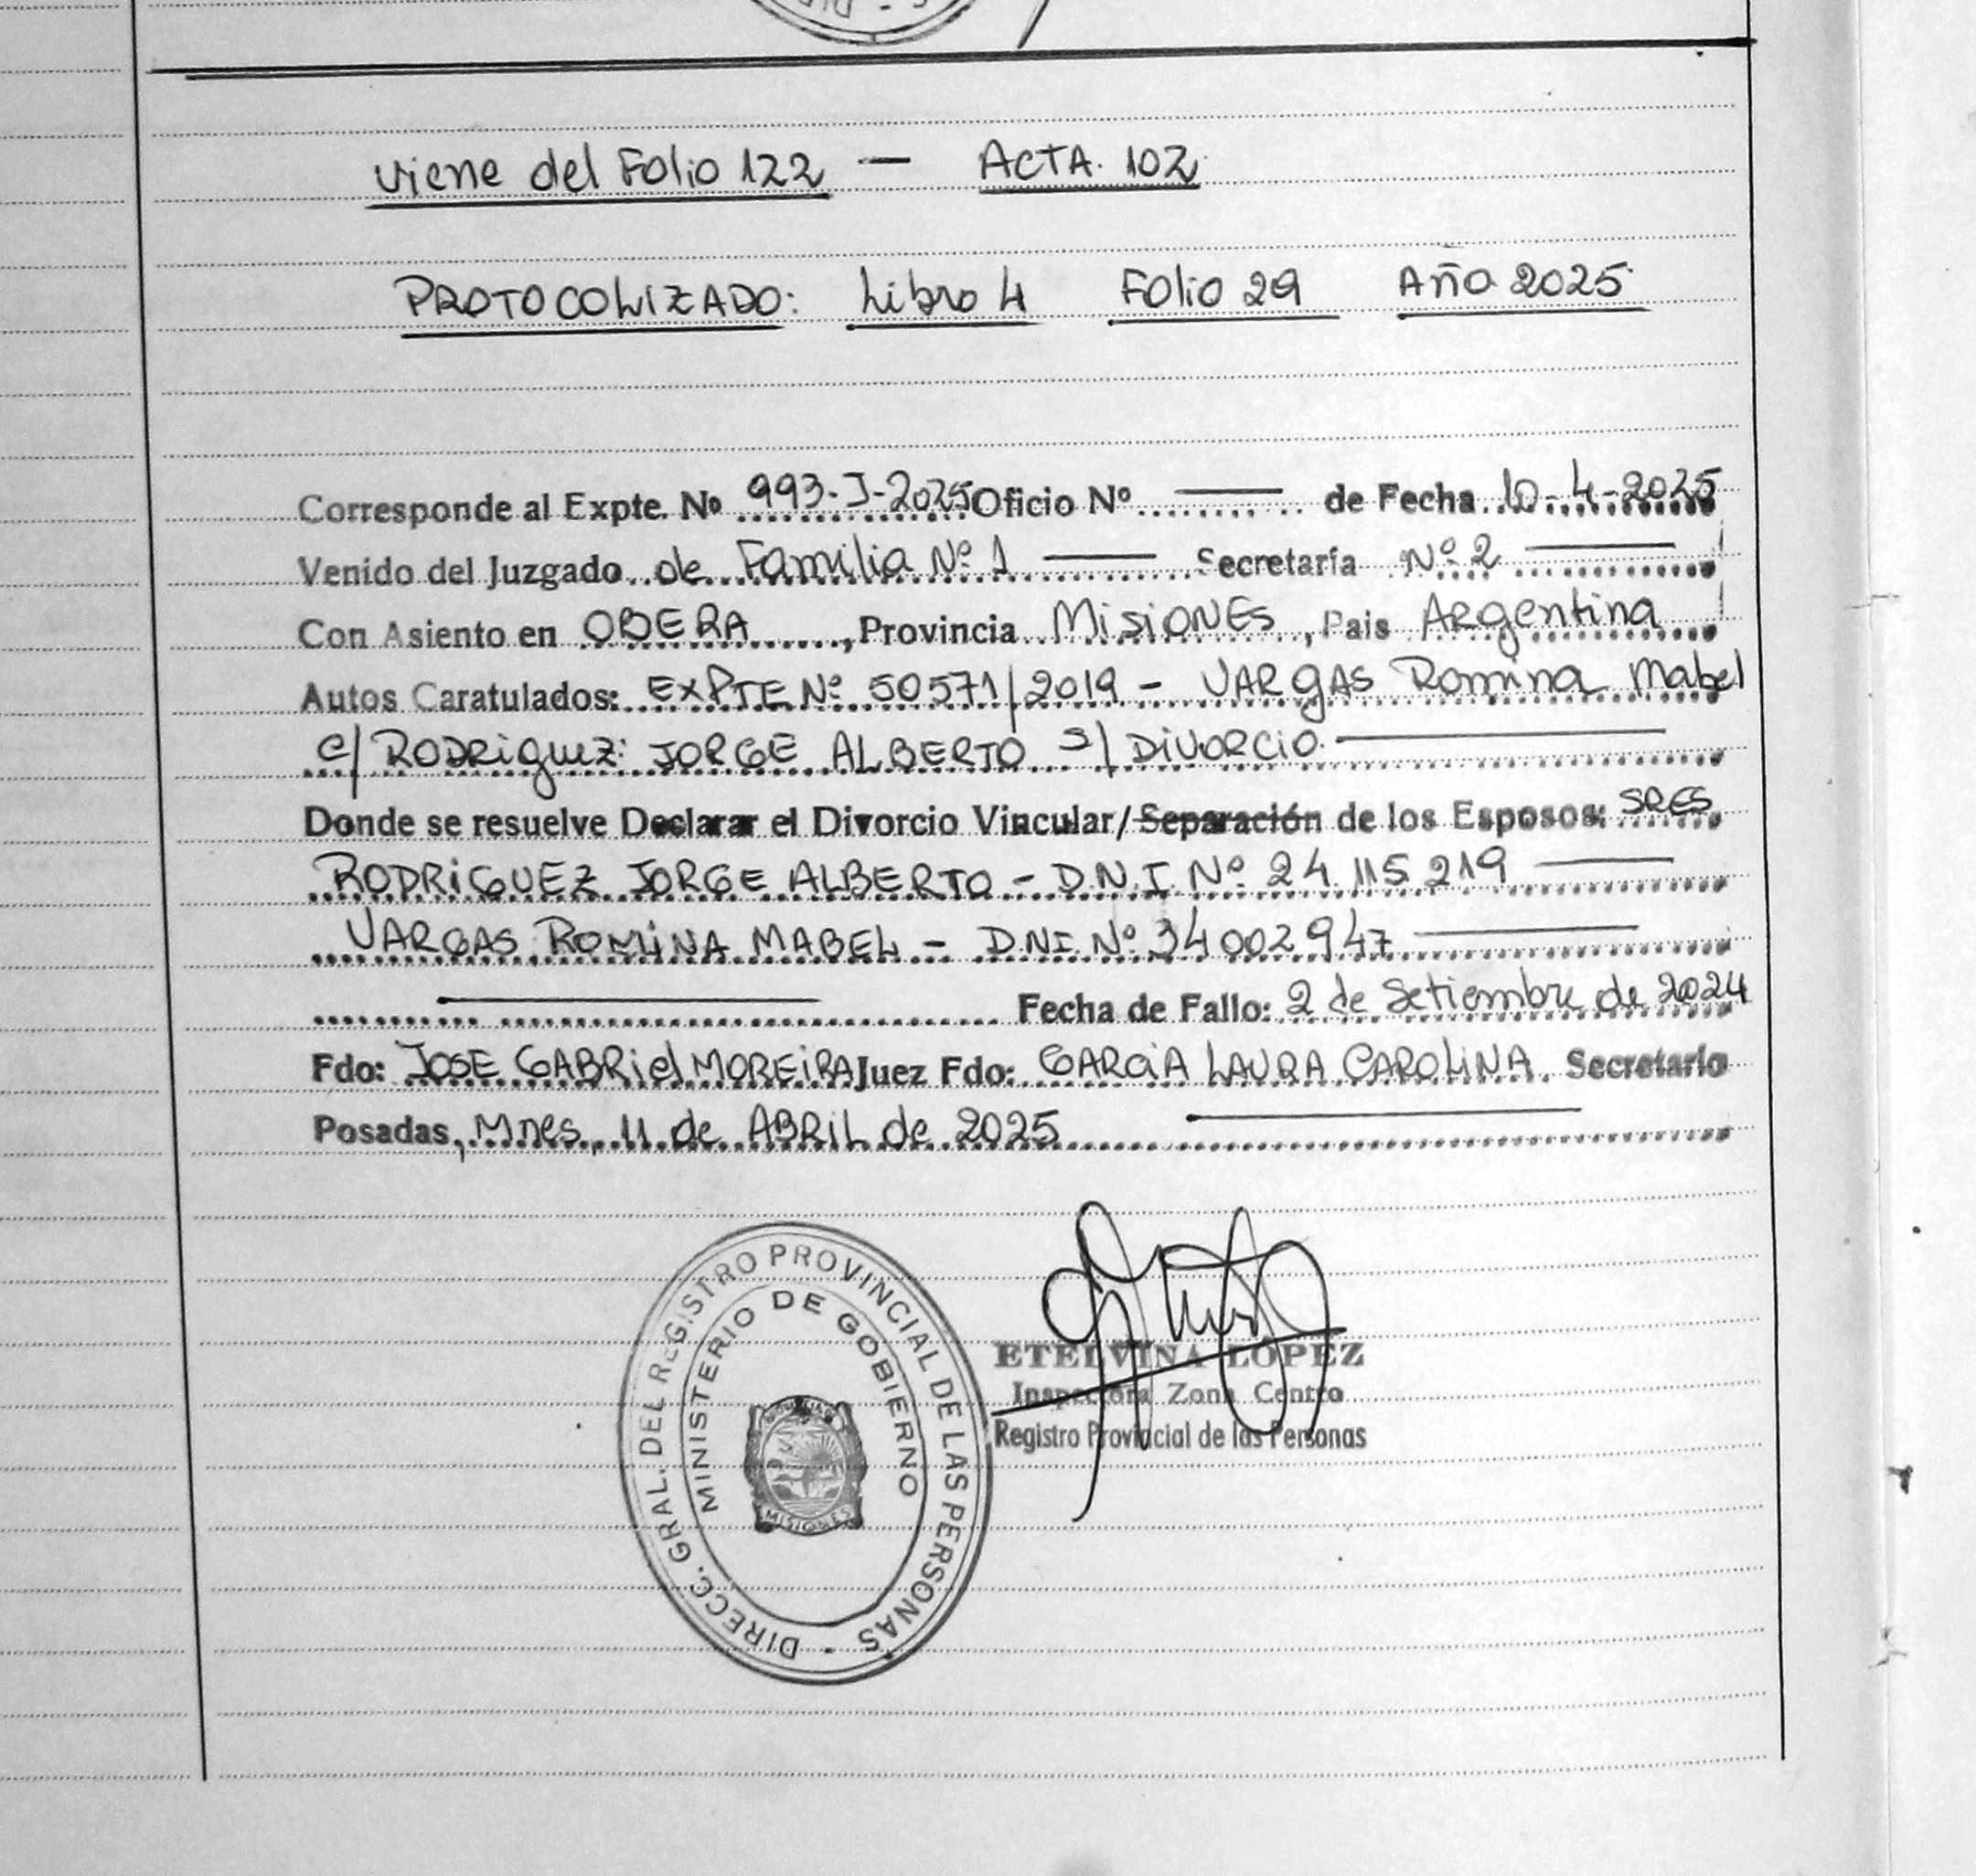 viene del Folio 122 — ACTA. 102
PROTOCOLIZADO: Libro 4 Folio 29 Año 2025
Corresponde al Expte. Nº 993-J-2025 Oficio Nº —— de Fecha 10-4-2025
Venido del Juzgado de Familia Nº 1 —— Secretaría Nº 2 ——
Con Asiento en OBERA, Provincia MisiONES, Pais Argentina
Autos Caratulados: EXPTE Nº 50571/2019 - VARgAS Romina Mabel
c/ RODRiguez: JORGE ALBERTO s/ DiVORCiO. ——
Donde se resuelve Declarar el Divorcio Vincular/Separación de los Esposos: SRES
RODRiGUEZ JORGE ALBERTO - D.N.I. Nº 24.115.219 ——
VARGAS ROMiNA MABEL - D.N.I. Nº 34.002.947 ——
—— Fecha de Fallo: 2 de Setiembre de 2024
Fdo: JOSE GABRiel MOREiRA Juez Fdo: GARCiA LAURA CAROLiNA. Secretario
Posadas, Mnes, 11 de ABRiL de 2025 ——
DIRECC. GRAL. DEL REGISTRO PROVINCIAL DE LAS PERSONAS
MINISTERIO DE GOBIERNO
MISIONES
ETELVINA LOPEZ
Inspectora Zona Centro
Registro Provincial de las Personas